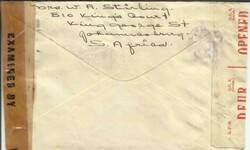 Mrs. W. A. Stirling
510 King's Court
King George St
Johannesburg
S. Africa
EXAMINED BY
OPENED
DEUR